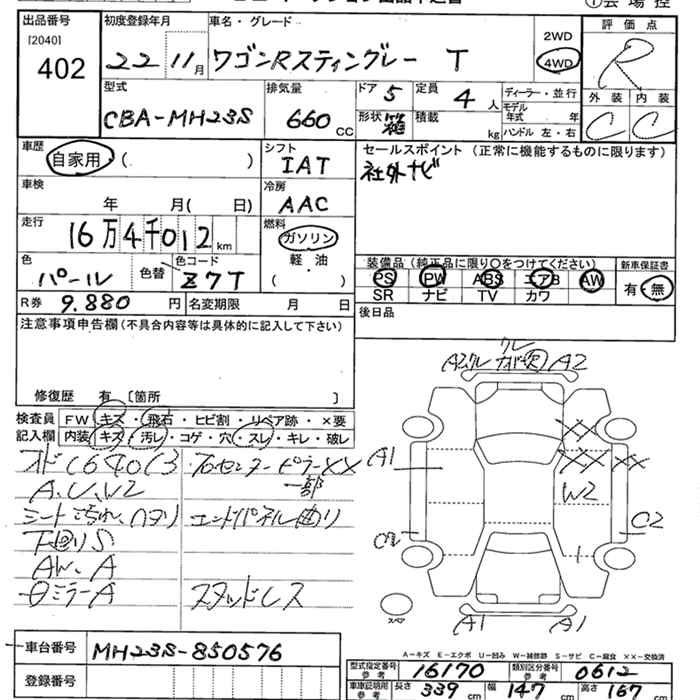 出品番号 初度登録年月 車名・グレード 評価点
[2040] 402 22 11月 ワゴンRスティングレー T 2WD 4WD R
外装 内装
C C
型式 排気量 ドア 5 定員 4人 ディーラー・並行
CBA-MH23S 660 CC 形状 箱 積載 kg モデル年式 年
ハンドル 左・右
車歴 自家用 ( ) シフト IAT セールスポイント (正規に機能するものに限ります)
社外ナビ
車検 年 月( 日) 冷房 AAC
走行 16万4千012km 燃料 ガソリン
軽・油
( )
色 パール 色替 色コード Z7T
装備品 (純正品に限り○をつけてください) 新車保証書
PS PW ABS エアB AW 有・無
SR ナビ TV カワ
R券 9.880 円 名変期限 月 日 後日品
注意事項申告欄 (不具合内容等は具体的に記入して下さい)
修復歴 有 [箇所 ]
検査員 FW キズ・飛石・ヒビ割・リペア跡・×要
記入欄 内装 キズ・汚レ・コゲ・穴・スレ・キレ・破レ
A2 A2
XX
A1 XX XX
A.U.W2 一部
W2
エンドパネル曲り C2
下回りS
AW.A
ミラーA スタッドレス
スペア A1 A1
車台番号 MH23S-850576
登録番号
A-キズ E-エクボ U-凹み W-補修跡 S-サビ C-腐食 XX-交換済
型式指定番号 参考 16170 類別区分番号 参考 0612
車庫証明用 参考 長さ 339 cm 幅 147 cm 高さ 167 cm